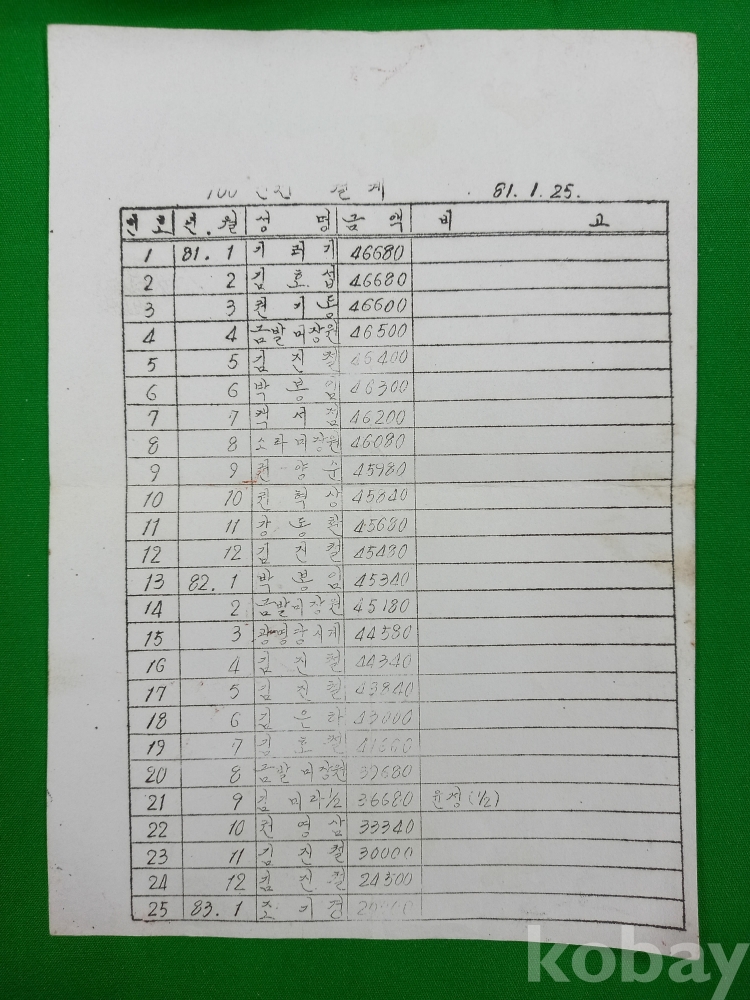 100 월계 81. 1. 25.
번호 년. 월 성 명 금 액 비 고
1 81. 1 46680
2 2 김 호 섭 46680
3 3 권 기 동 46600
4 4 금발미장원 46500
5 5 김 진 철 46400
6 6 박 봉 임 46300
7 7 책 서 점 46200
8 8 소라미장원 46080
9 9 권 양 순 45980
10 10 권 혁 상 45840
11 11 강 동 45680
12 12 김 진 철 45480
13 82. 1 박 봉 임 45340
14 2 금발미장원 45180
15 3 광명당시계 44580
16 4 김 진 철 44340
17 5 김 진 철 43840
18 6 김 은 하 43000
19 7 김 호
20 8 금발미장원 39680
21 9 김 미라½ 36680 윤정(½)
22 10 권 영 삼 33340
23 11 김 진 철 30000
24 12 김 진 철 24500
25 83. 1 조 기
kobay